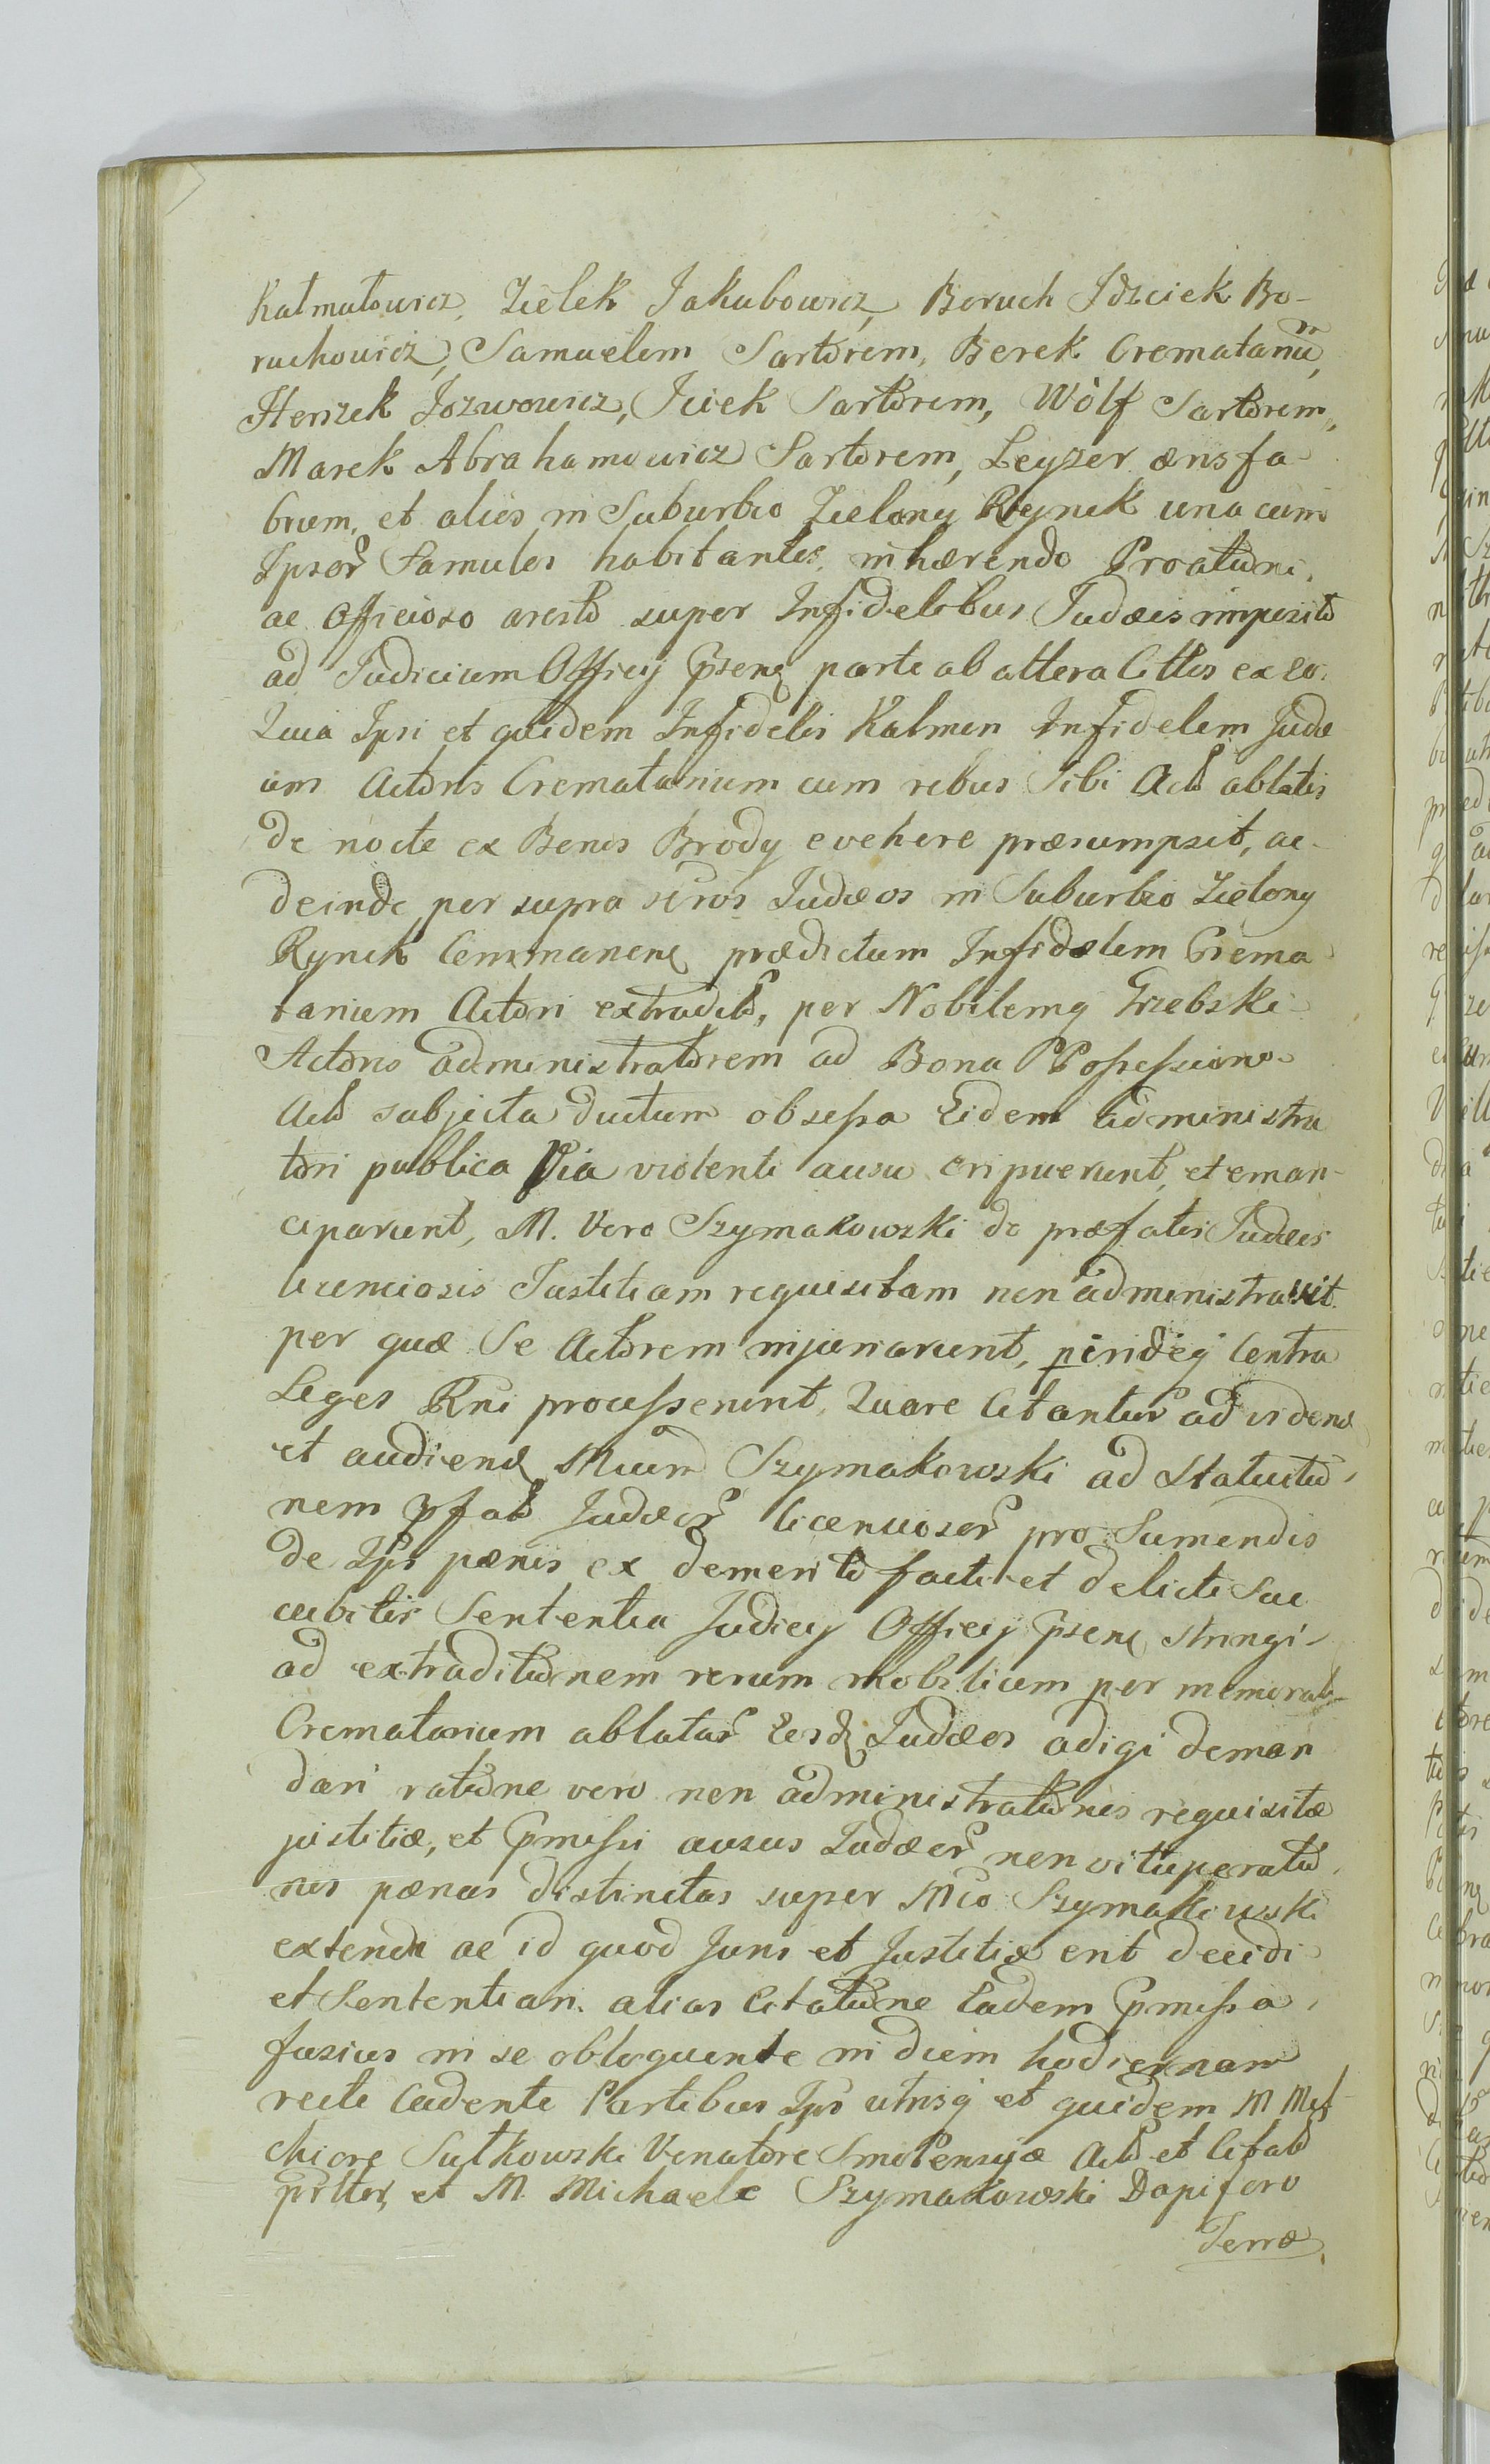 Kałmałowicz, Zielek Jakubowicz, Boruch Jdziek Bo-
ruchowicz, Samuelem Sartorem, Berek Crematariũ,
Herszek Jozwowicz, Jciek Sartorem, Wolf Sartorem,
Marek Abrahamowicz Sartorem, Leyzer æris fa-
brum, et alios in Suburbio Zielony Rynek una cum
Ipsor̃ Famulos habitantes, inhærendo Proa͠tuni,
ac officioso aresto super Infidelibus Judæis imposito
ad Judicium Officij p̃sens parte ab altera Cittos ex eo.
Quia Ipsi et quidem Infidelis Kalmen Infidelem Judæ
um Actoris Crematarium cum rebus Sibi Acto ablatis
de nocte ex Bonis Brody evehere præsumpsit, ac
deinde per supra scrõs Judæos in Suburbio Zielony
Rynek Commanen prædictum Infidelem Crema
tarium Actori extradito, per Nobilemq Trzebski
Actoris administratorem ad Bona Possessione
Acto subjecta ductum obsessa Eidem administra
tori publica Via violenti ausu eripuerunt, et eman-
ciparunt, M. Vero Szymakowski de præfatis Judæis
licenciosis Justitiam requisitam non administravit.
per quæ Se Actorem injuriarunt, perindeq Contra
Leges Rñi processerunt, Quare Citantur ad videnđ
et audienđ Mĩum Szymakowski ad Statuitio
nem p̃fat Judæor̃ licenciosor̃ pro Sumendis
de Ip̃s pænis ex demerito facti et delicti Suc
cubitis Sententia Judicij Officij p̃sens stringi
ad extraditionem rerum mobilium per memorat
Crematarium ablatar̃ Eosđ Judæos adigi deman
dari ratione vero non administrationis requisitæ
justitiæ, et p̃missi ausus Judæor̃ non vituperatio
nis pænas distinctas super Mĩo Szymakowski
extendi ac id quod Juris et Justitiæ erit decidi
et Sententiari. alias Citatione Eadem p̃missa
fusius in se obloquente in diem hodiernam
recte Cadente Partibus Ip̃s utrisq et quidem M Mel
chiore Sułkowski Venatore Smolensciæ Acto et Citato
prltter, et M. Michaele Szymakowski Dapifero
Terræ